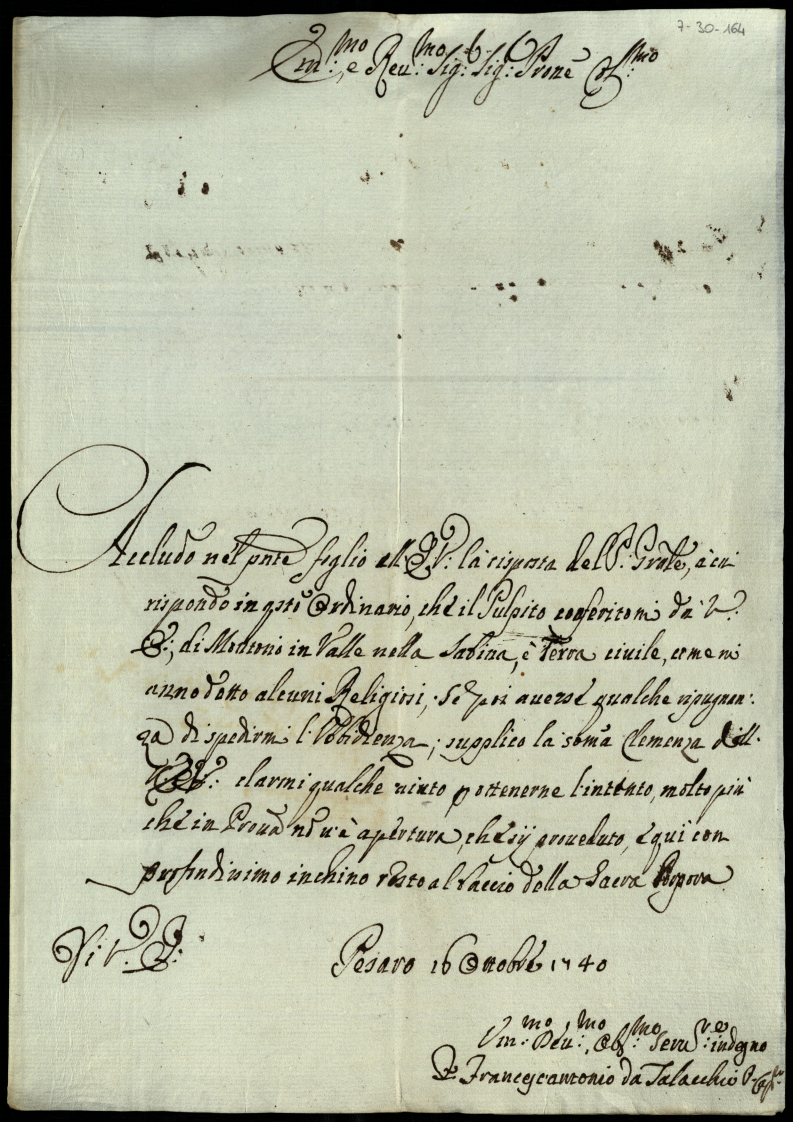 7-30-164
Em:mo e Reu:mo Sig:r Sig:r Prone
Accludo nel pnte foglio all' E.V: la risposta del P: Gnle, à cui
rispondo in qsto Ordinario, che il Pulpito conferitomi da V:
E:, di Montorio in Valle nella Sabina, è Terra ciuile, come mi
anno detto alcuni Religiosi, Se poi auesse qualche ripugnan:
za di spedirmi l'Vbbidienza, supplico la soma Clemenza dell'
E.V: à darmi qualche aiuto p ottenerne l'intento, molto più
che in Proua no u'è apertura, che sij proueduto, e qui con
profondissimo inchino resto al baccio della Sacra Porpora
Di V. E:
Pesaro 16 Ottobre 1740
Vm:mo Deu:mo Obb:mo Seru:re indegno
F. Francescantonio da Talacchio